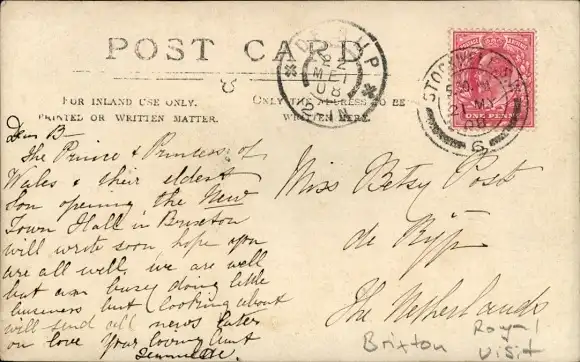 POST CARD
DE RIJP
22 MEI 08
8-9 N
STOCKWELL S.O.
21 MY 08
6
ONE PENNY
FOR INLAND USE ONLY.
PRINTED OR WRITTEN MATTER.
ONLY THE ADDRESS TO BE
WRITTEN HERE.
Dear B-
The Prince & Princess of
Wales & their eldest
Son opening the New
Town Hall in Brixton
will wrote soon, hope you
are all well, we are well
but am busy doing little
business but looking about
will send all news later
on love Your loving Aunt
Miss Betsy Post
de Rijp
The Netherlands
Brixton
Royal
Visit